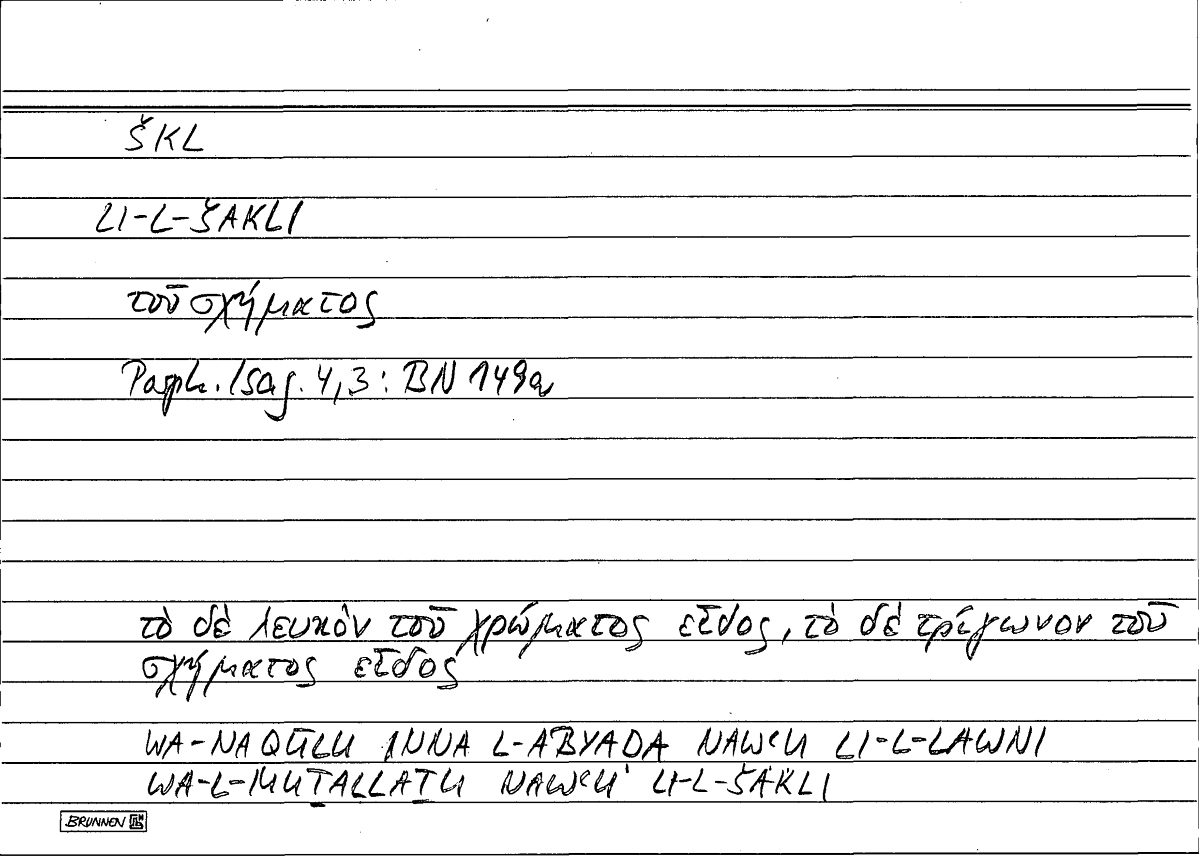 ŠKL
LI-L-ŠAKLI
τοῦ σχήματος
Porph. Isag. 4,3 : BN 149a
τὸ δὲ λευκὸν τοῦ χρώματος εἶδος, τὸ δὲ τρίγωνον τοῦ
σχήματος εἶδος
WA-NAQŪLU INNA L-ABYADA NAWʿU LI-L-LAWNI
WA-L-MUṮALLAṮU NAWʿU LI-L-ŠAKLI
BRUNNEN